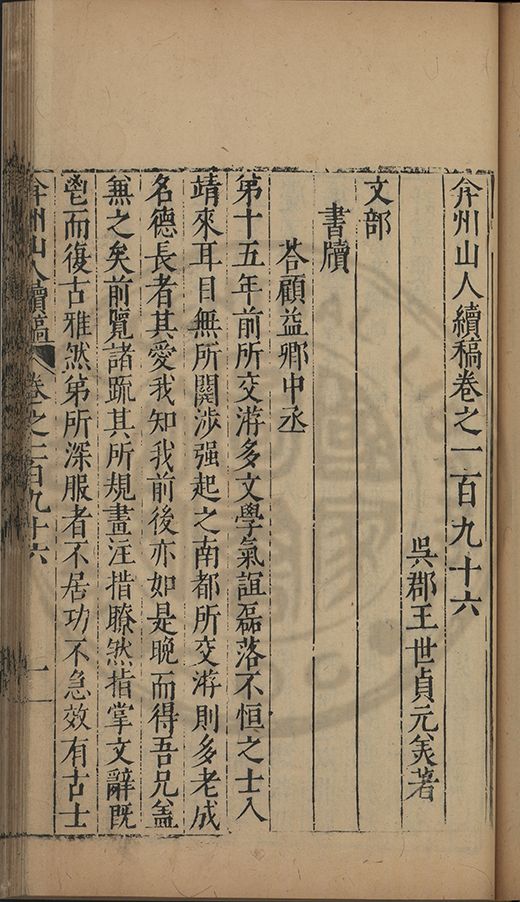 弇州山人續稿卷之一百九十六
吳郡王世貞元美著
文部
書牘
荅顧益卿中丞
第十五年前所交游多文學氣誼磊落不恒之士入
靖來耳目無所關涉强起之南都所交游則多老成
名德長者其愛我知我前後亦如是晚而得吾兄盖
無之矣前覽諸疏其所規畫注措瞭然指掌文辭旣
鬯而復古雅然第所深服者不居功不急效有古士
弇州山人續稿 卷之一百九十六 一